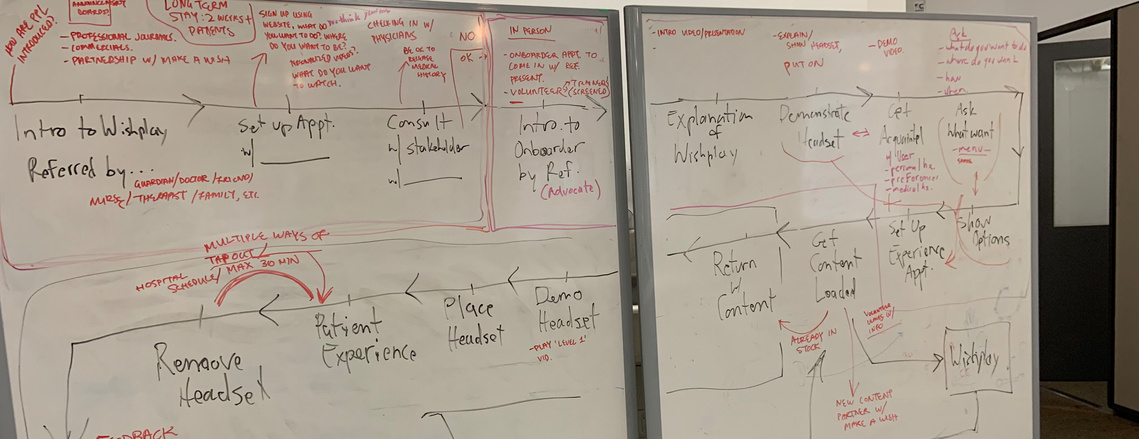 ANNOUNCEMENT
BOARDS?
HOW ARE PPL
INTRODUCED?
- PROFESSIONAL JOURNALS.
- COMMERCIALS.
- PARTNERSHIP W/ MAKE A WISH
LONG TERM
STAY: 2 WEEKS+
PATIENTS
SIGN UP USING
WEBSITE. WHAT DO
YOU WANT TO DO? WHERE
DO YOU WANT TO BE?
WHAT DO YOU WANT
TO WATCH.
CHECKING IN W/
PHYSICIANS
BE OK TO
RELEASE
MEDICAL
HISTORY
NO
OK
Intro to Wishplay
Referred by...
GUARDIAN/DOCTOR/FRIEND/
NURSE/THERAPIST/FAMILY, ETC
Set up Appt.
w/
Consult
w/ Stakeholder
w/
IN PERSON
- ONBOARDER APPT TO
COME IN W/ REF.
PRESENT.
- VOLUNTEERS
(SCREENED)
Intro. to
Onboarder
by Ref.
(Advocate)
MULTIPLE WAYS OF
TAPOUT/
HOSPITAL
SCHEDULE/MAX 30 MIN
Remove
Headset
Patient
Experience
Place
Headset
Demo
Headset
- PLAY 'LEVEL 1'
VID.
FEEDBACK
- INTRO VIDEO/PRESENTATION
- EXPLAIN/
SHOW HEADSET,
PUT ON
- DEMO
VIDEO
Ask
- what do you want to do
- where do you want
- how
- when
Explanation
of
Wishplay
Demonstrate
Headset
Get
Acquainted
w/ User
- personal hx.
- preferences
- medical hx.
Ask
What want
- menu -
Show
Options
Set Up
Experience
Appt.
Get
Content
Loaded
Return
w/
Content
ALREADY IN
STOCK
VOLUNTEER
INFO
Wishplay
NEW CONTENT
PARTNER W/
MAKE A WISH